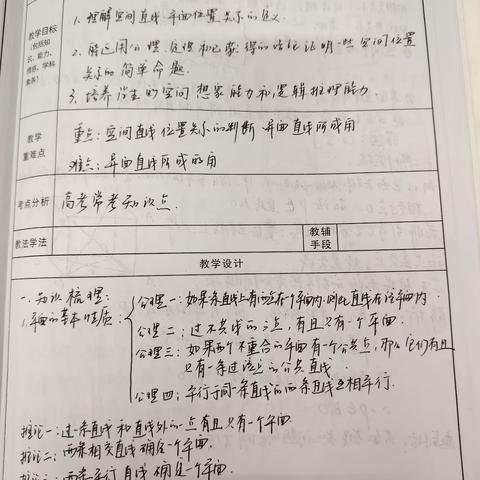 教学目标
(包括知
识、能力、
情感、学科
素养)
1、理解空间直线、平面位置关系的定义.
2、能运用公理、定理和已获得的结论证明一些空间位置
关系的简单命题.
3、培养学生的空间想象能力和逻辑推理能力.
教学
重难点
重点：空间直线位置关系的判断 异面直线所成角
难点：异面直线所成的角
考点分析
高考常考知识点.
教法学法
教辅
手段
教学设计
一、知识梳理：
1.平面的基本性质：
公理一：如果一条直线上有两点在一个平面内,则此直线在该平面内.
公理二：过不共线的三点,有且只有一个平面.
公理三：如果两个不重合的平面有一个公共点,那么它们有且
只有一条过该点的公共直线.
公理四：平行于同一条直线的两条直线互相平行.
推论一：过一条直线和直线外的一点有且只有一个平面.
推论二：两条相交直线确定一个平面.
推论三：两条平行直线确定一个平面.